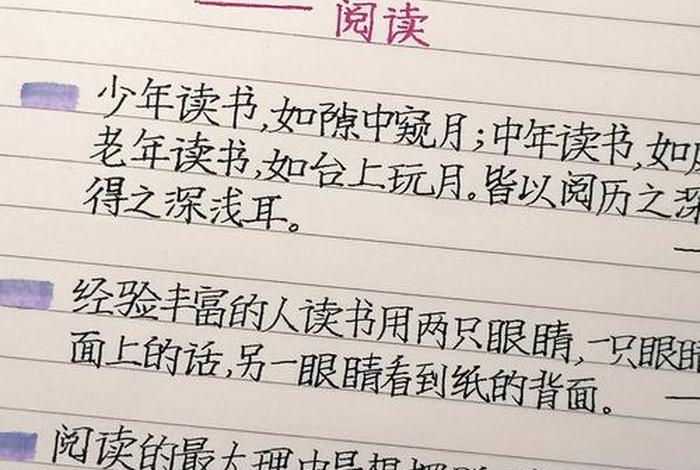 —— 阅读
少年读书,如隙中窥月;中年读书,如
老年读书,如台上玩月。皆以阅历之深
得之深浅耳。
经验丰富的人读书用两只眼睛,一只眼睛
面上的话,另一眼睛看到纸的背面。
阅读的最大理由是想摆脱